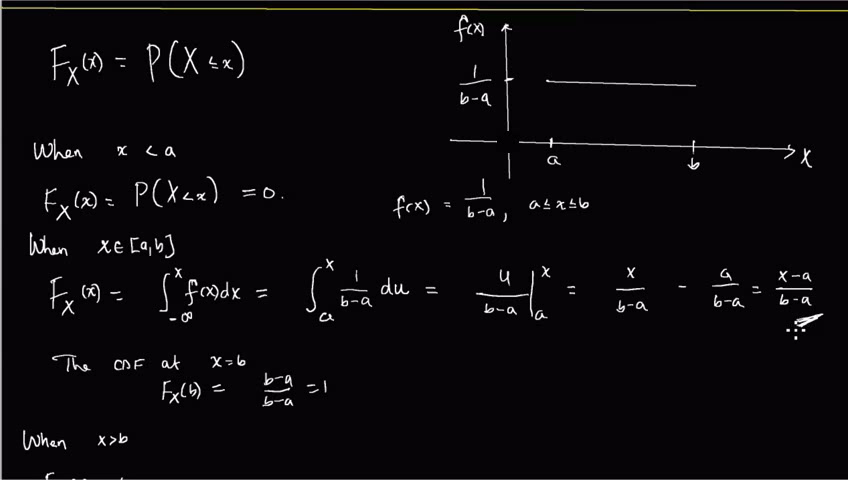 F_X(x) = P(X ≤ x)
f(x)
1/(b-a)
a
b
X
When x < a
F_X(x) = P(X<x) = 0.
f(x) = 1/(b-a), a≤x≤b
When x∈[a,b]
F_X(x) = ∫_{-∞}^{x} f(x)dx = ∫_{a}^{x} 1/(b-a) du = u/(b-a) |_{a}^{x} = x/(b-a) - a/(b-a) = (x-a)/(b-a)
The CDF at x=b
F_X(b) = (b-a)/(b-a) = 1
When x>b